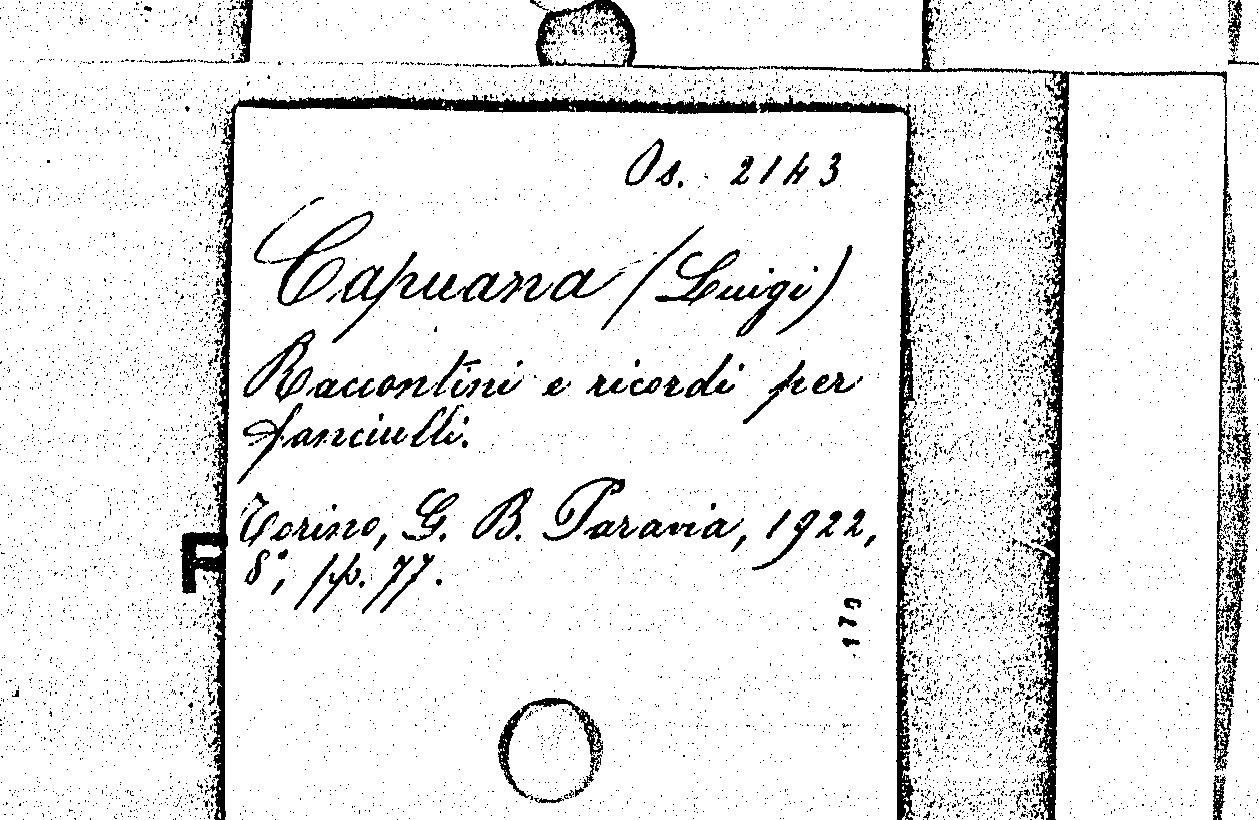 Os. 2143
Capuana (Luigi)
Raccontini e ricordi per
fanciulli.
Torino, G. B. Paravia, 1922,
8°, pp. 77.
170
F